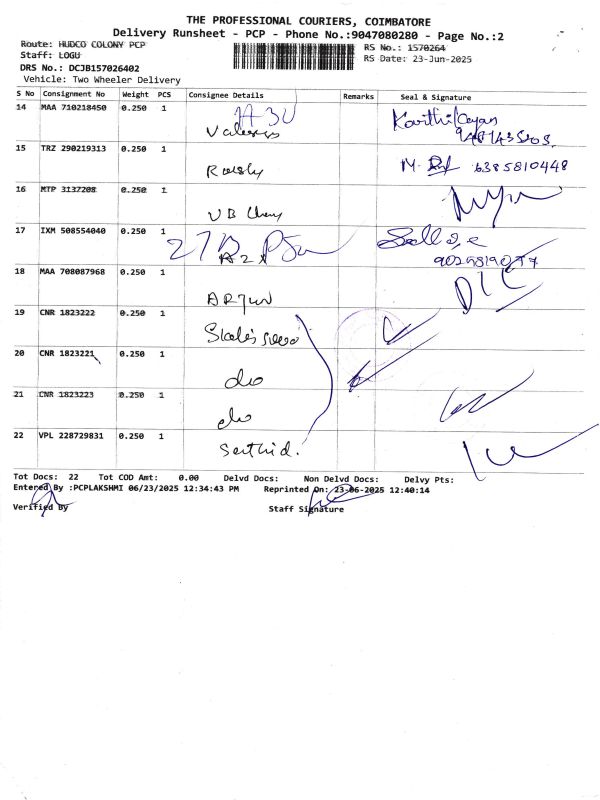 THE PROFESSIONAL COURIERS, COIMBATORE
Delivery Runsheet - PCP - Phone No.:9047080280 - Page No.:2
Route: HUDCO COLONY PCP
RS No.: 1570264
Staff: LOGU
RS Date: 23-Jun-2025
DRS No.: DCJB157026402
Vehicle: Two Wheeler Delivery
S No Consignment No Weight PCS Consignee Details Remarks Seal & Signature
14 MAA 710218450 0.250 1
15 TRZ 290219313 0.250 1 6385810448
16 MTP 3137208 0.250 1
17 IXM 508554040 0.250 1
18 MAA 708087968 0.250 1
ARJUN
19 CNR 1823222 0.250 1
20 CNR 1823221 0.250 1
do
21 CNR 1823223 0.250 1
do
22 VPL 228729831 0.250 1
Tot Docs: 22 Tot COD Amt: 0.00 Delvd Docs: Non Delvd Docs: Delvy Pts:
Entered By :PCPLAKSHMI 06/23/2025 12:34:43 PM Reprinted On: 23-06-2025 12:40:14
Verified By Staff Signature